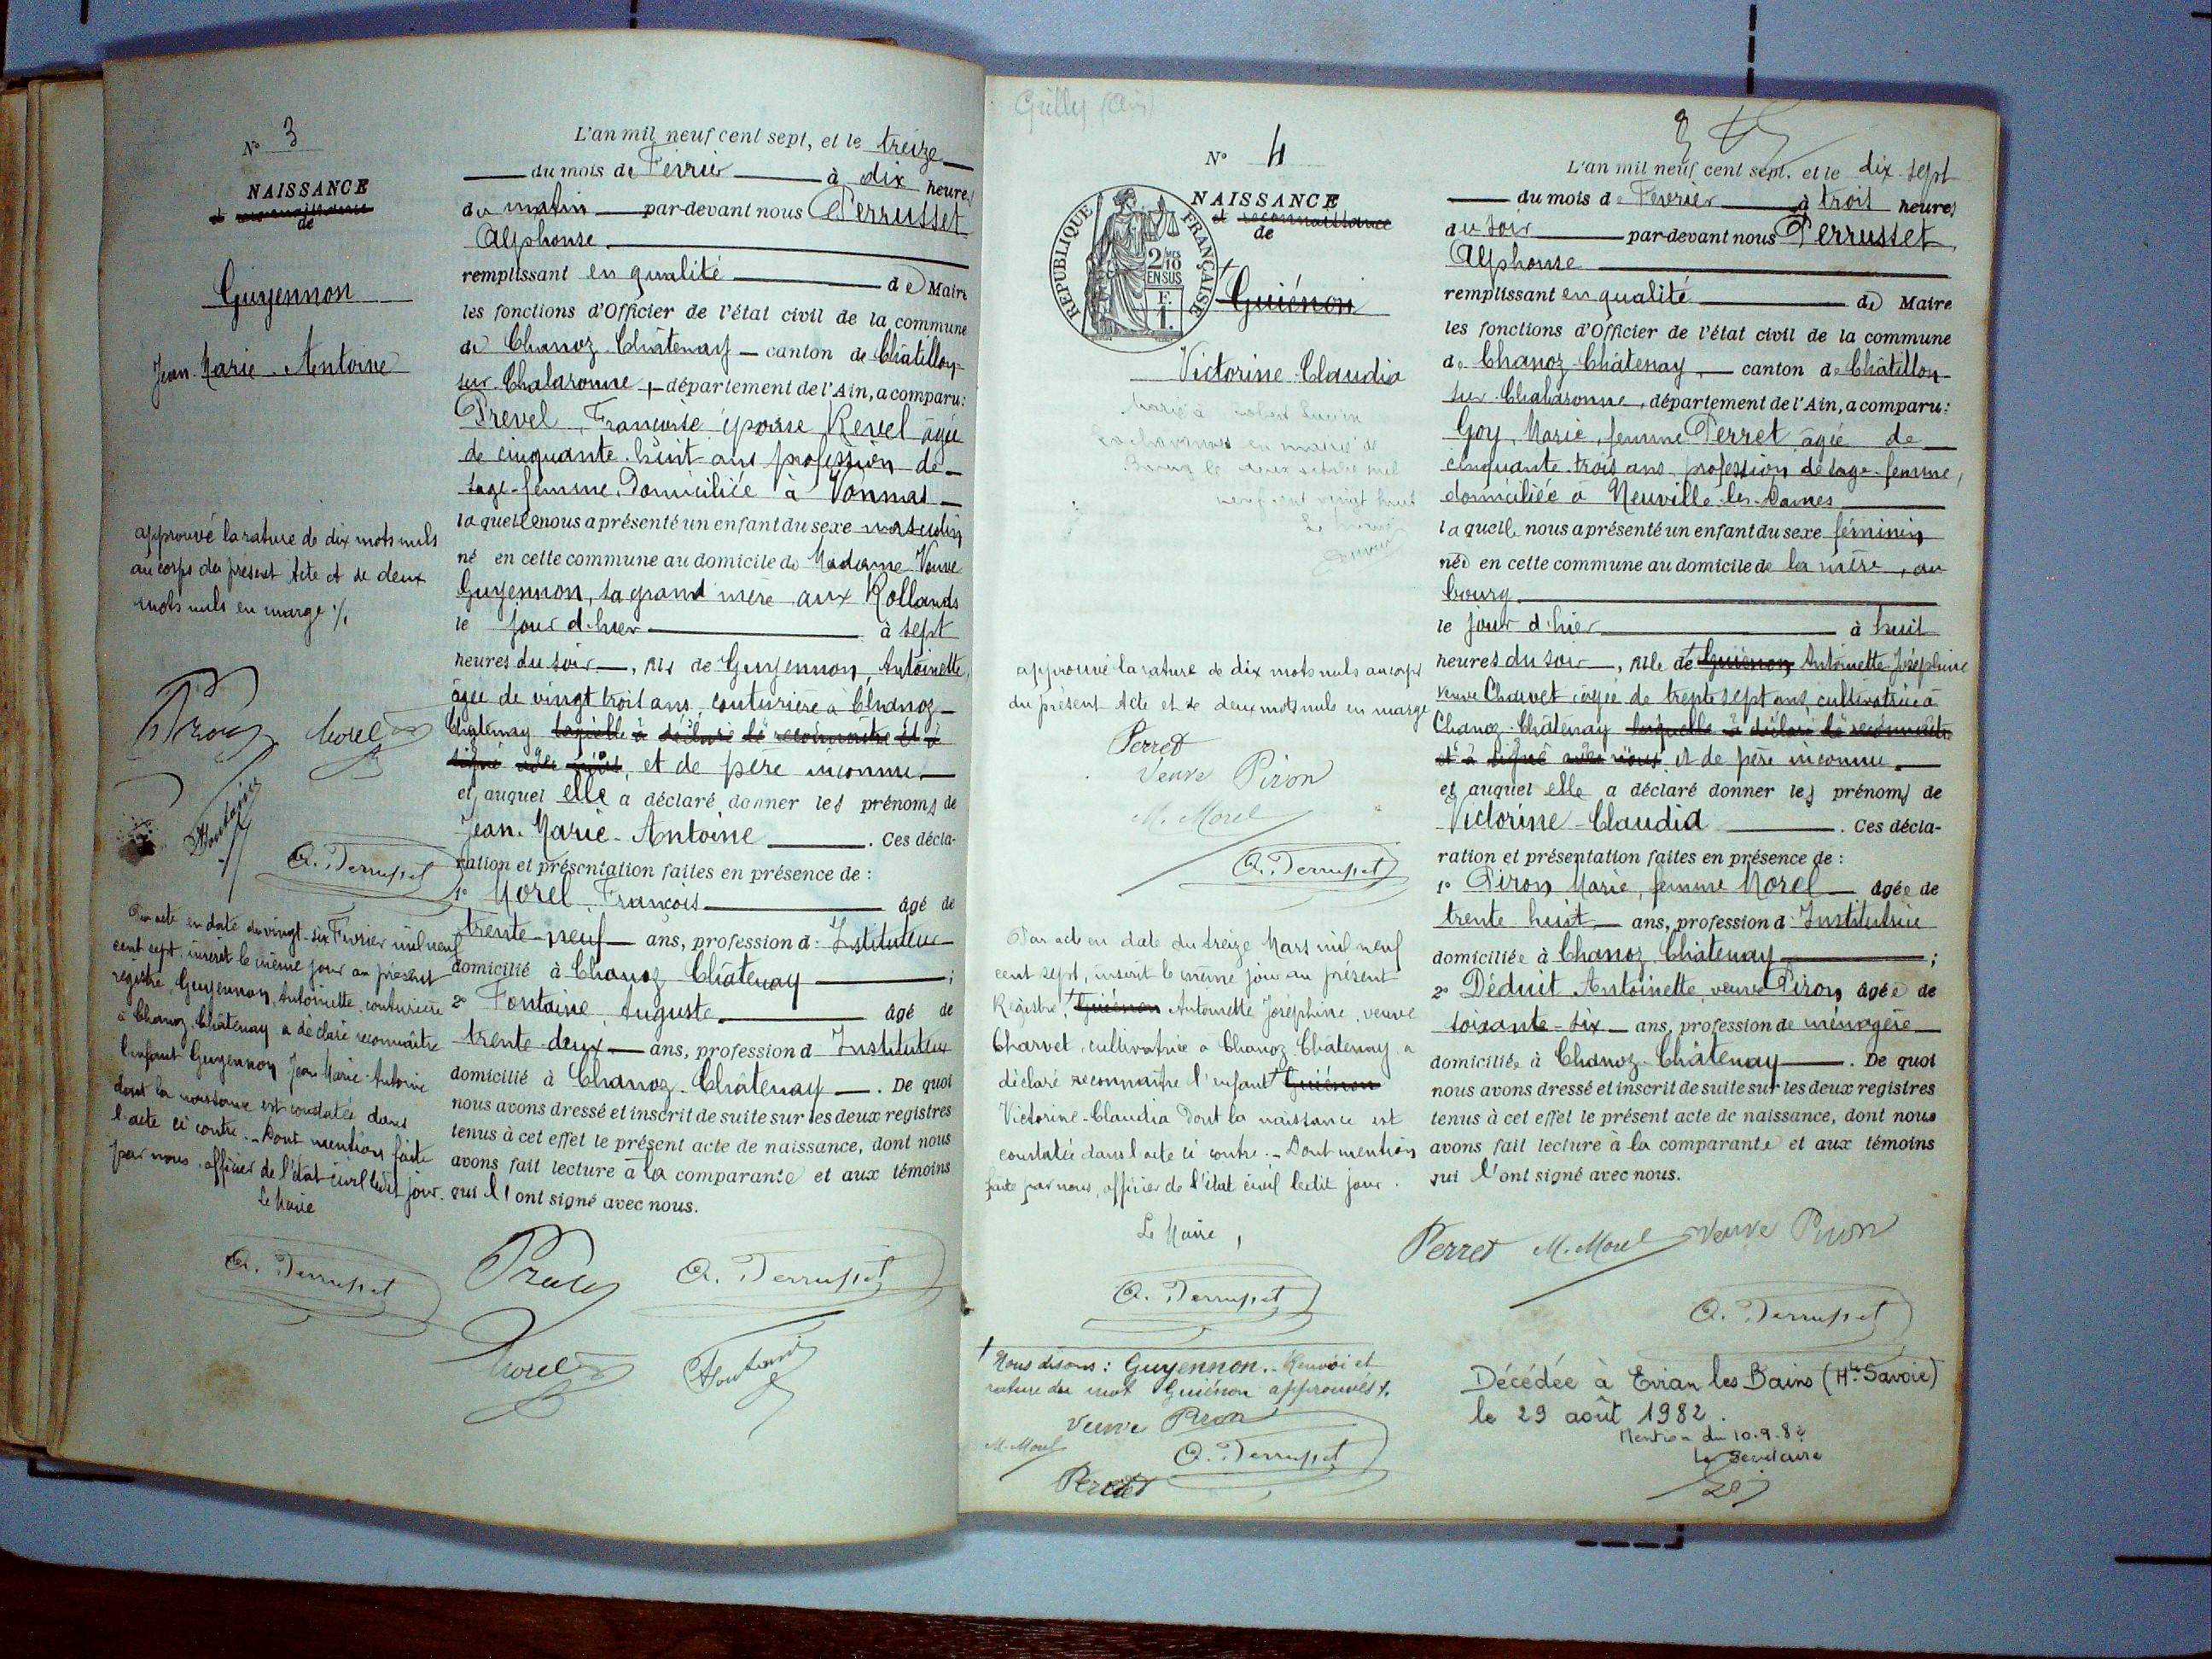 N° 3
NAISSANCE
de
Guyennon
Jean-Marie-Antoine
approuvé la rature de dix mots nuls
au corps du présent acte et de deux
mots nuls en marge
A. Perrusset
Par acte en date du vingt-six Février mil neuf
cent sept, inscrit le même jour au présent
registre, Guyennon, Antoinette, couturière
à Chanoz-Châtenay a déclaré reconnaître
l'enfant Guyennon Jean-Marie-Antoine
dont la naissance est constatée dans
l'acte ci contre. - Dont mention faite
par nous, officier de l'état-civil ledit jour.
Le Maire
A. Perrusset
L'an mil neuf cent sept, et le treize
du mois de Février à dix heures
du matin par-devant nous Perrusset
Alphonse
remplissant en qualité de Maire
les fonctions d'Officier de l'état civil de la commune
de Chanoz-Châtenay canton de Châtillon-
sur-Chalaronne, département de l'Ain, a comparu:
Prevel, Françoise épouse Revel âgée
de cinquante-huit ans profession de
sage-femme domiciliée à Vonnas
laquelle nous a présenté un enfant du sexe masculin
né en cette commune au domicile de Madame Veuve
Guyennon, sa grand'mère aux Rollands
le jour d'hier à sept
heures du soir, fils de Guyennon, Antoinette,
âgée de vingt trois ans, couturière à Chanoz-
Châtenay laquelle a déclaré le reconnaître et a
signé avec nous, et de père inconnu
et auquel elle a déclaré donner les prénoms de
Jean-Marie-Antoine. Ces décla-
ration et présentation faites en présence de :
1° Morel François âgé de
trente-neuf ans, profession d'Instituteur
domicilié à Chanoz Châtenay ;
2° Fontaine Auguste âgé de
trente-deux ans, profession d'Instituteur
domicilié à Chanoz-Châtenay. De quoi
nous avons dressé et inscrit de suite sur les deux registres
tenus à cet effet le présent acte de naissance, dont nous
avons fait lecture à la comparante et aux témoins
qui l'ont signé avec nous.
A. Perrusset
Morel
Fontaine
Grilly (Ain)
N° 4
NAISSANCE
et reconnaissance
de
RÉPUBLIQUE FRANÇAISE
2/10 EN SUS
F. 1.
Guiénon
Victorine-Claudia
approuvé la rature de dix mots nuls au corps
du présent acte et de deux mots nuls en marge
Perret
Veuve Piron
M. Morel
A. Perrusset
Par acte en date du treize Mars mil neuf
cent sept, inscrit le même jour au présent
Registre, Guiénon Antoinette Joséphine, veuve
Charvet, cultivatrice à Chanoz-Châtenay a
déclaré reconnaître l'enfant Guiénon
Victorine-Claudia dont la naissance est
constatée dans l'acte ci contre. - Dont mention
faite par nous, officier de l'état civil ledit jour.
Le Maire,
A. Perrusset
Nous disons : Guyennon. Renvoi et
rature du mot Guiénon approuvés
Veuve Piron
M. Morel
A. Perrusset
Perret
L'an mil neuf cent sept, et le dix-sept
du mois de Février à trois heures
du soir par-devant nous Perrusset
Alphonse
remplissant en qualité de Maire
les fonctions d'Officier de l'état civil de la commune
de Chanoz-Châtenay canton de Châtillon-
sur-Chalaronne, département de l'Ain, a comparu:
Goy, Marie, femme Perret âgée de
cinquante-trois ans profession de sage-femme,
domiciliée à Neuville-les-Dames
laquelle nous a présenté un enfant du sexe féminin
née en cette commune au domicile de la mère, au
bourg
le jour d'hier à huit
heures du soir, fille de Guiénon Antoinette Joséphine
veuve Charvet âgée de trente sept ans, cultivatrice à
Chanoz-Châtenay laquelle a déclaré la reconnaître
et a signé avec nous, et de père inconnu
et auquel elle a déclaré donner les prénoms de
Victorine-Claudia. Ces décla-
ration et présentation faites en présence de :
1° Piron Marie, femme Morel âgée de
trente huit ans, profession d'Institutrice
domiciliée à Chanoz Châtenay ;
2° Déduit Antoinette, veuve Piron, âgée de
soixante-six ans, profession de ménagère
domiciliée à Chanoz-Châtenay. De quoi
nous avons dressé et inscrit de suite sur les deux registres
tenus à cet effet le présent acte de naissance, dont nous
avons fait lecture à la comparante et aux témoins
qui l'ont signé avec nous.
Perret M. Morel Veuve Piron
A. Perrusset
Décédée à Evian les Bains (Hte Savoie)
le 29 août 1982.
Mention du 10.9.82
Le Secrétaire